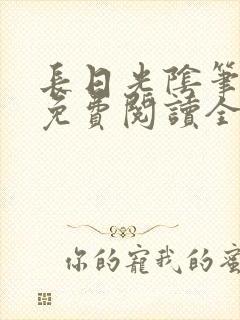 長日光陰筆
免費閱讀全
你的寵我的蜜